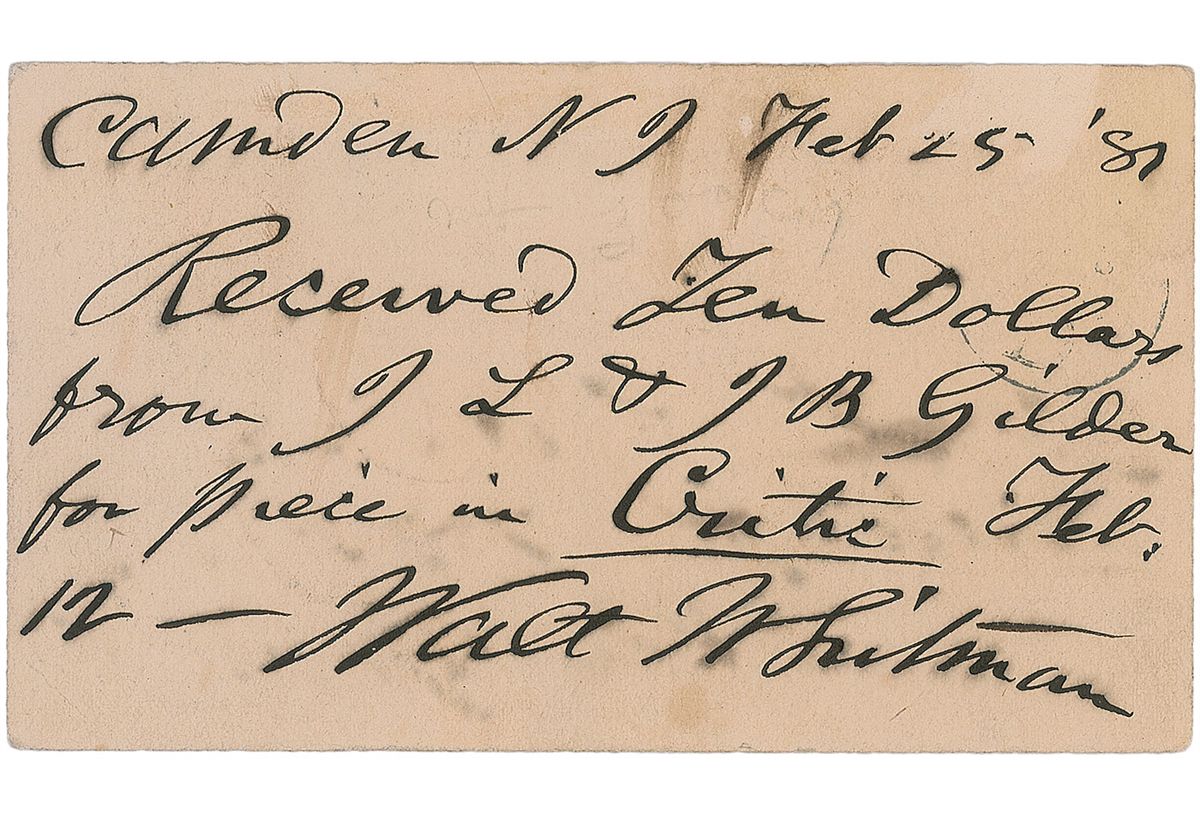 Camden N J Feb 25 '81
Received Ten Dollars
from J L & J B Gilder
for piece in Critic Feb.
12 — Walt Whitman